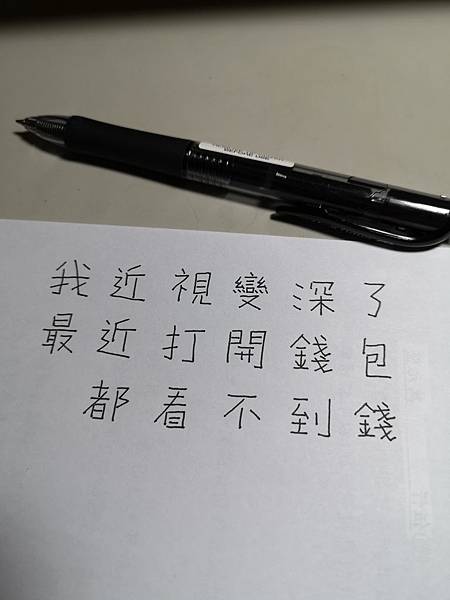 我近視變深了
最近打開錢包
都看不到錢